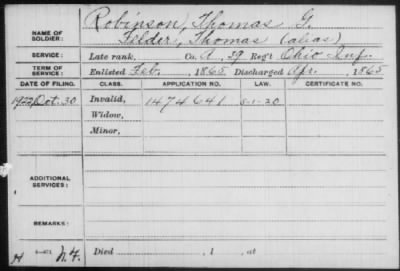 NAME OF SOLDIER: Robinson, Thomas G.
Felder, Thomas (alias)
SERVICE: Late rank, Co. A, 39 Reg't Ohio Inf.
TERM OF SERVICE: Enlisted Feb. , 1865 Discharged Apr. , 1865
DATE OF FILING. CLASS. APPLICATION NO. LAW. CERTIFICATE NO.
1922 Oct. 30 Invalid, 1474641 5-1-20
Widow,
Minor,
ADDITIONAL SERVICES:
REMARKS:
Died , 1 , at